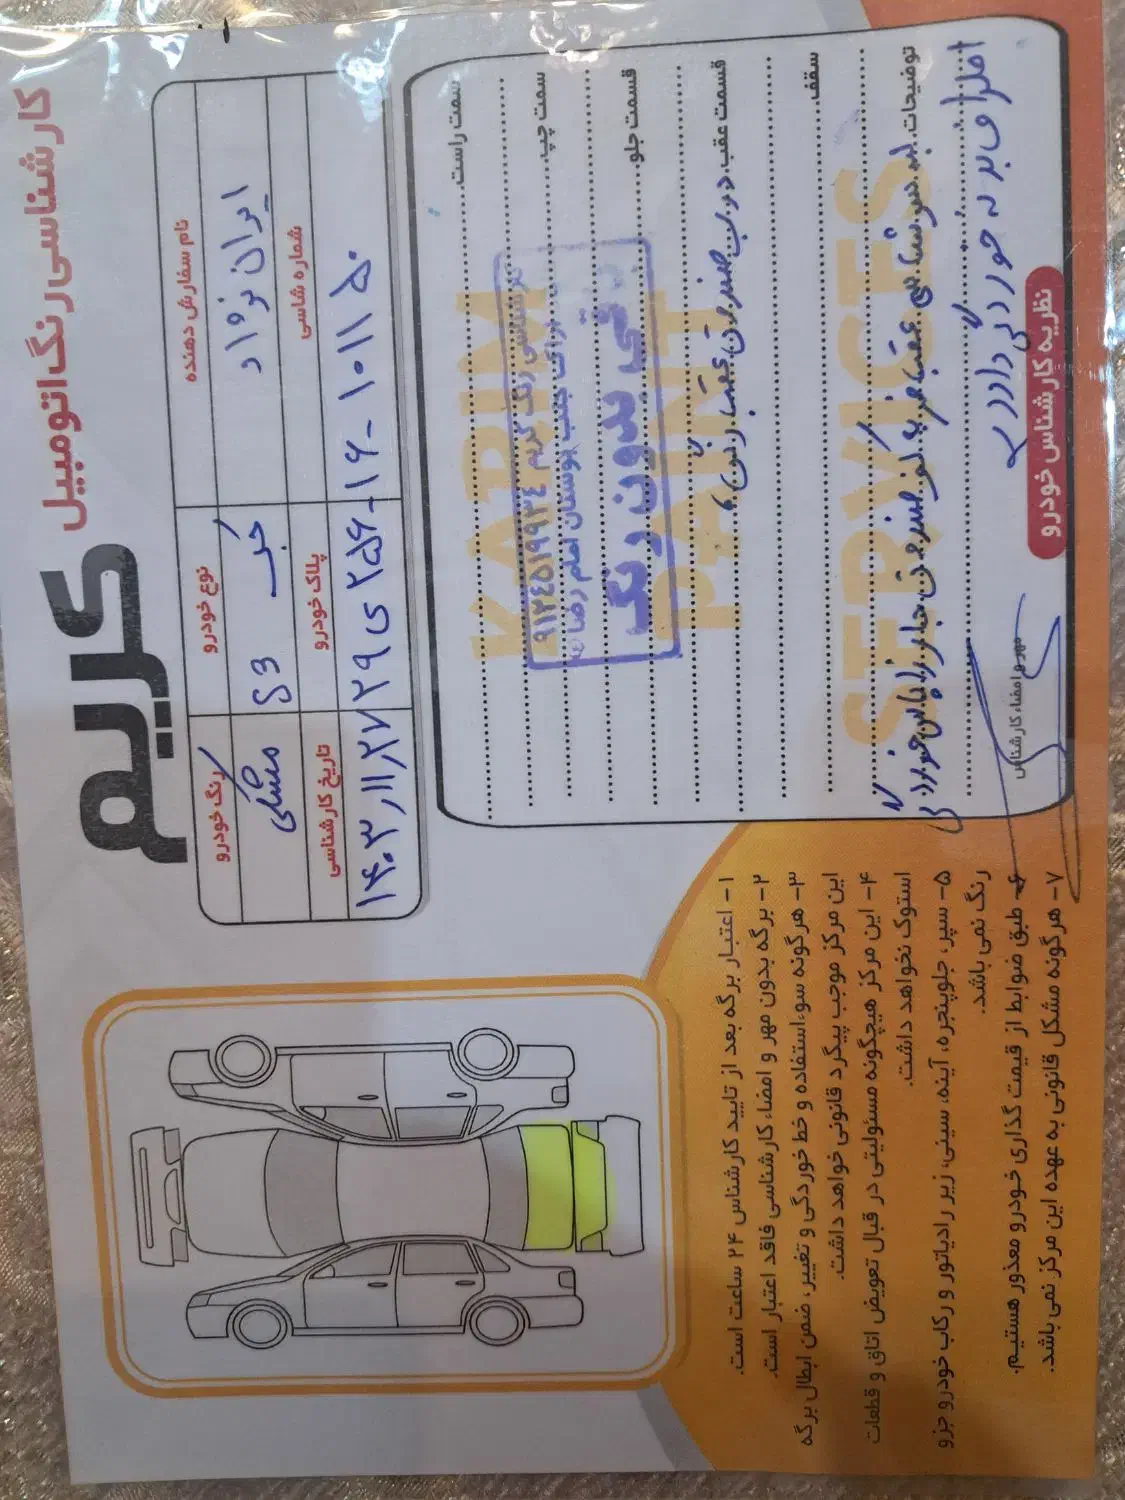 کارشناسی رنگ اتومبیل
کریم
نام سفارش دهنده
نوع خودرو
رنگ خودرو
ایران نژاد
جک S3
مشکی
شماره شاسی
پلاک خودرو
تاریخ کارشناسی
۱۰۱۱۵۰
۲۹ی۲۵۶-۱۶
۱۴۰۳/۱۱/۲۷
سمت راست
سمت چپ
قسمت جلو
قسمت عقب درب صندوق عقب رنگ
سقف
توضیحات
KARIM
PAINT
SERVICES
کارشناسی رنگ کریم ۰۹۱۲۴۵۱۹۹۳۴
بوستان امام رضا
مابقی بدون رنگ
نظریه کارشناس خودرو
مهر و امضاء کارشناس
۱- اعتبار برگه بعد از تایید کارشناس ۲۴ ساعت است.
۲- برگه بدون مهر و امضاء کارشناسی فاقد اعتبار است.
۳- هرگونه سوءاستفاده و خط خوردگی و تغییر، ضمن ابطال برگه
این مرکز موجب پیگرد قانونی خواهد داشت.
۴- این مرکز هیچگونه مسئولیتی در قبال تعویض اتاق و قطعات
استوک نخواهد داشت.
۵- سپر، جلوپنجره، آینه، سینی، زیر رادیاتور و رکاب خودرو جزو
رنگ نمی باشد.
۶- طبق ضوابط از قیمت گذاری خودرو معذور هستیم.
۷- هرگونه مشکل قانونی به عهده این مرکز نمی باشد.